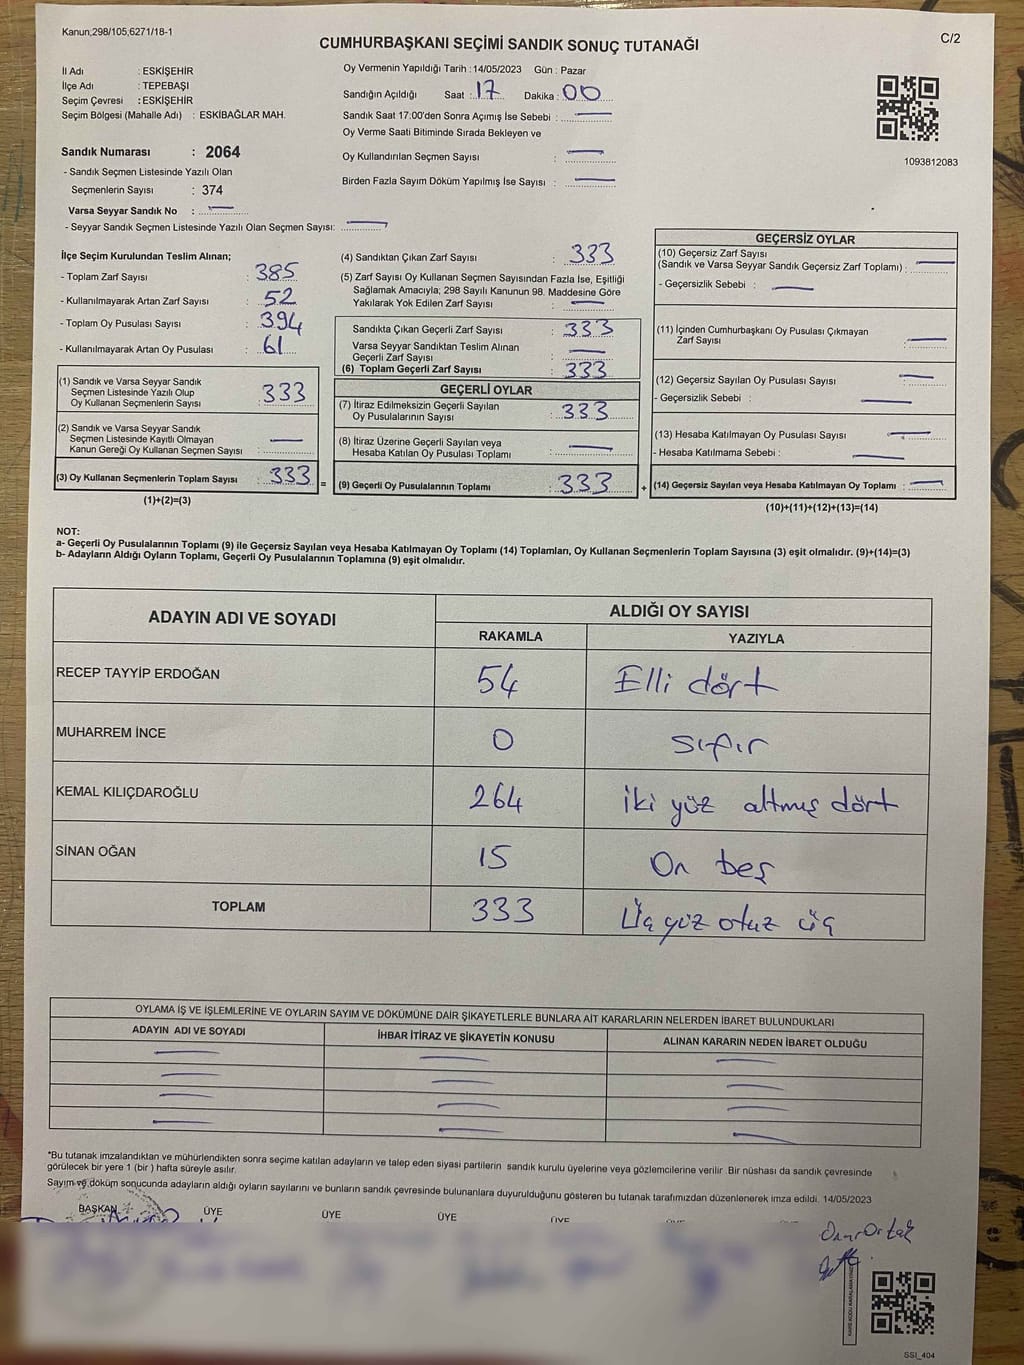 Kanun;298/105,6271/18-1
C/2
CUMHURBAŞKANI SEÇİMİ SANDIK SONUÇ TUTANAĞI
İl Adı : ESKİŞEHİR
İlçe Adı : TEPEBAŞI
Seçim Çevresi : ESKİŞEHİR
Seçim Bölgesi (Mahalle Adı) : ESKİBAĞLAR MAH.
Oy Vermenin Yapıldığı Tarih : 14/05/2023 Gün : Pazar
Sandığın Açıldığı Saat : 17 Dakika : 00
Sandık Saat 17:00'den Sonra Açımış İse Sebebi :
Oy Verme Saati Bitiminde Sırada Bekleyen ve
Oy Kullandırılan Seçmen Sayısı :
Birden Fazla Sayım Döküm Yapılmış İse Sayısı :
1093812083
Sandık Numarası : 2064
- Sandık Seçmen Listesinde Yazılı Olan
Seçmenlerin Sayısı : 374
Varsa Seyyar Sandık No :
- Seyyar Sandık Seçmen Listesinde Yazılı Olan Seçmen Sayısı:
İlçe Seçim Kurulundan Teslim Alınan;
- Toplam Zarf Sayısı : 385
- Kullanılmayarak Artan Zarf Sayısı : 52
- Toplam Oy Pusulası Sayısı : 394
- Kullanılmayarak Artan Oy Pusulası : 61
(1) Sandık ve Varsa Seyyar Sandık
Seçmen Listesinde Yazılı Olup
Oy Kullanan Seçmenlerin Sayısı : 333
(2) Sandık ve Varsa Seyyar Sandık
Seçmen Listesinde Kayıtlı Olmayan
Kanun Gereği Oy Kullanan Seçmen Sayısı :
(3) Oy Kullanan Seçmenlerin Toplam Sayısı : 333 =
(1)+(2)=(3)
(4) Sandıktan Çıkan Zarf Sayısı : 333
(5) Zarf Sayısı Oy Kullanan Seçmen Sayısından Fazla İse, Eşitliği
Sağlamak Amacıyla; 298 Sayılı Kanunun 98. Maddesine Göre
Yakılarak Yok Edilen Zarf Sayısı :
Sandıkta Çıkan Geçerli Zarf Sayısı : 333
Varsa Seyyar Sandıktan Teslim Alınan
Geçerli Zarf Sayısı :
(6) Toplam Geçerli Zarf Sayısı : 333
GEÇERLİ OYLAR
(7) İtiraz Edilmeksizin Geçerli Sayılan
Oy Pusulalarının Sayısı : 333
(8) İtiraz Üzerine Geçerli Sayılan veya
Hesaba Katılan Oy Pusulası Toplamı :
(9) Geçerli Oy Pusulalarının Toplamı : 333 +
GEÇERSİZ OYLAR
(10) Geçersiz Zarf Sayısı
(Sandık ve Varsa Seyyar Sandık Geçersiz Zarf Toplamı) :
- Geçersizlik Sebebi :
(11) İçinden Cumhurbaşkanı Oy Pusulası Çıkmayan
Zarf Sayısı :
(12) Geçersiz Sayılan Oy Pusulası Sayısı :
- Geçersizlik Sebebi :
(13) Hesaba Katılmayan Oy Pusulası Sayısı :
- Hesaba Katılmama Sebebi :
(14) Geçersiz Sayılan veya Hesaba Katılmayan Oy Toplamı :
(10)+(11)+(12)+(13)=(14)
NOT:
a- Geçerli Oy Pusulalarının Toplamı (9) ile Geçersiz Sayılan veya Hesaba Katılmayan Oy Toplamı (14) Toplamları, Oy Kullanan Seçmenlerin Toplam Sayısına (3) eşit olmalıdır. (9)+(14)=(3)
b- Adayların Aldığı Oyların Toplamı, Geçerli Oy Pusulalarının Toplamına (9) eşit olmalıdır.
ADAYIN ADI VE SOYADI
ALDIĞI OY SAYISI
RAKAMLA YAZIYLA
RECEP TAYYİP ERDOĞAN 54 Elli dört
MUHARREM İNCE 0 sıfır
KEMAL KILIÇDAROĞLU 264 iki yüz altmış dört
SİNAN OĞAN 15 On beş
TOPLAM 333 Üç yüz otuz üç
OYLAMA İŞ VE İŞLEMLERİNE VE OYLARIN SAYIM VE DÖKÜMÜNE DAİR ŞİKAYETLERLE BUNLARA AİT KARARLARIN NELERDEN İBARET BULUNDUKLARI
ADAYIN ADI VE SOYADI İHBAR İTİRAZ VE ŞİKAYETİN KONUSU ALINAN KARARIN NEDEN İBARET OLDUĞU
*Bu tutanak imzalandıktan ve mühürlendikten sonra seçime katılan adayların ve talep eden siyasi partilerin sandık kurulu üyelerine veya gözlemcilerine verilir. Bir nüshası da sandık çevresinde
görülecek bir yere 1 (bir ) hafta süreyle asılır.
Sayım ve döküm sonucunda adayların aldığı oyların sayılarını ve bunların sandık çevresinde bulunanlara duyurulduğunu gösteren bu tutanak tarafımızdan düzenlenerek imza edildi. 14/05/2023
BAŞKAN ÜYE ÜYE ÜYE ÜYE
SSI_404